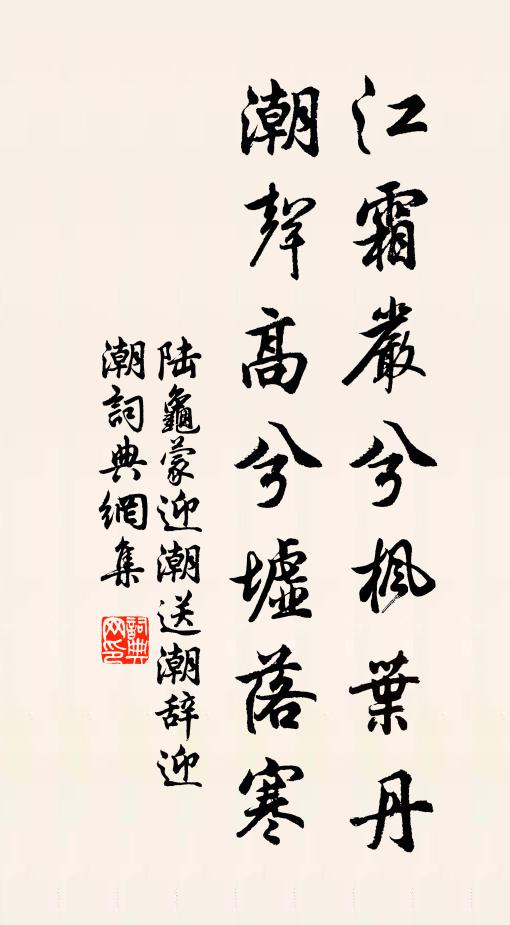 江霜嚴兮楓葉丹
潮聲高兮墟落寒
陆龜蒙迎潮送潮辞迎
潮詞典網集
詞典网印